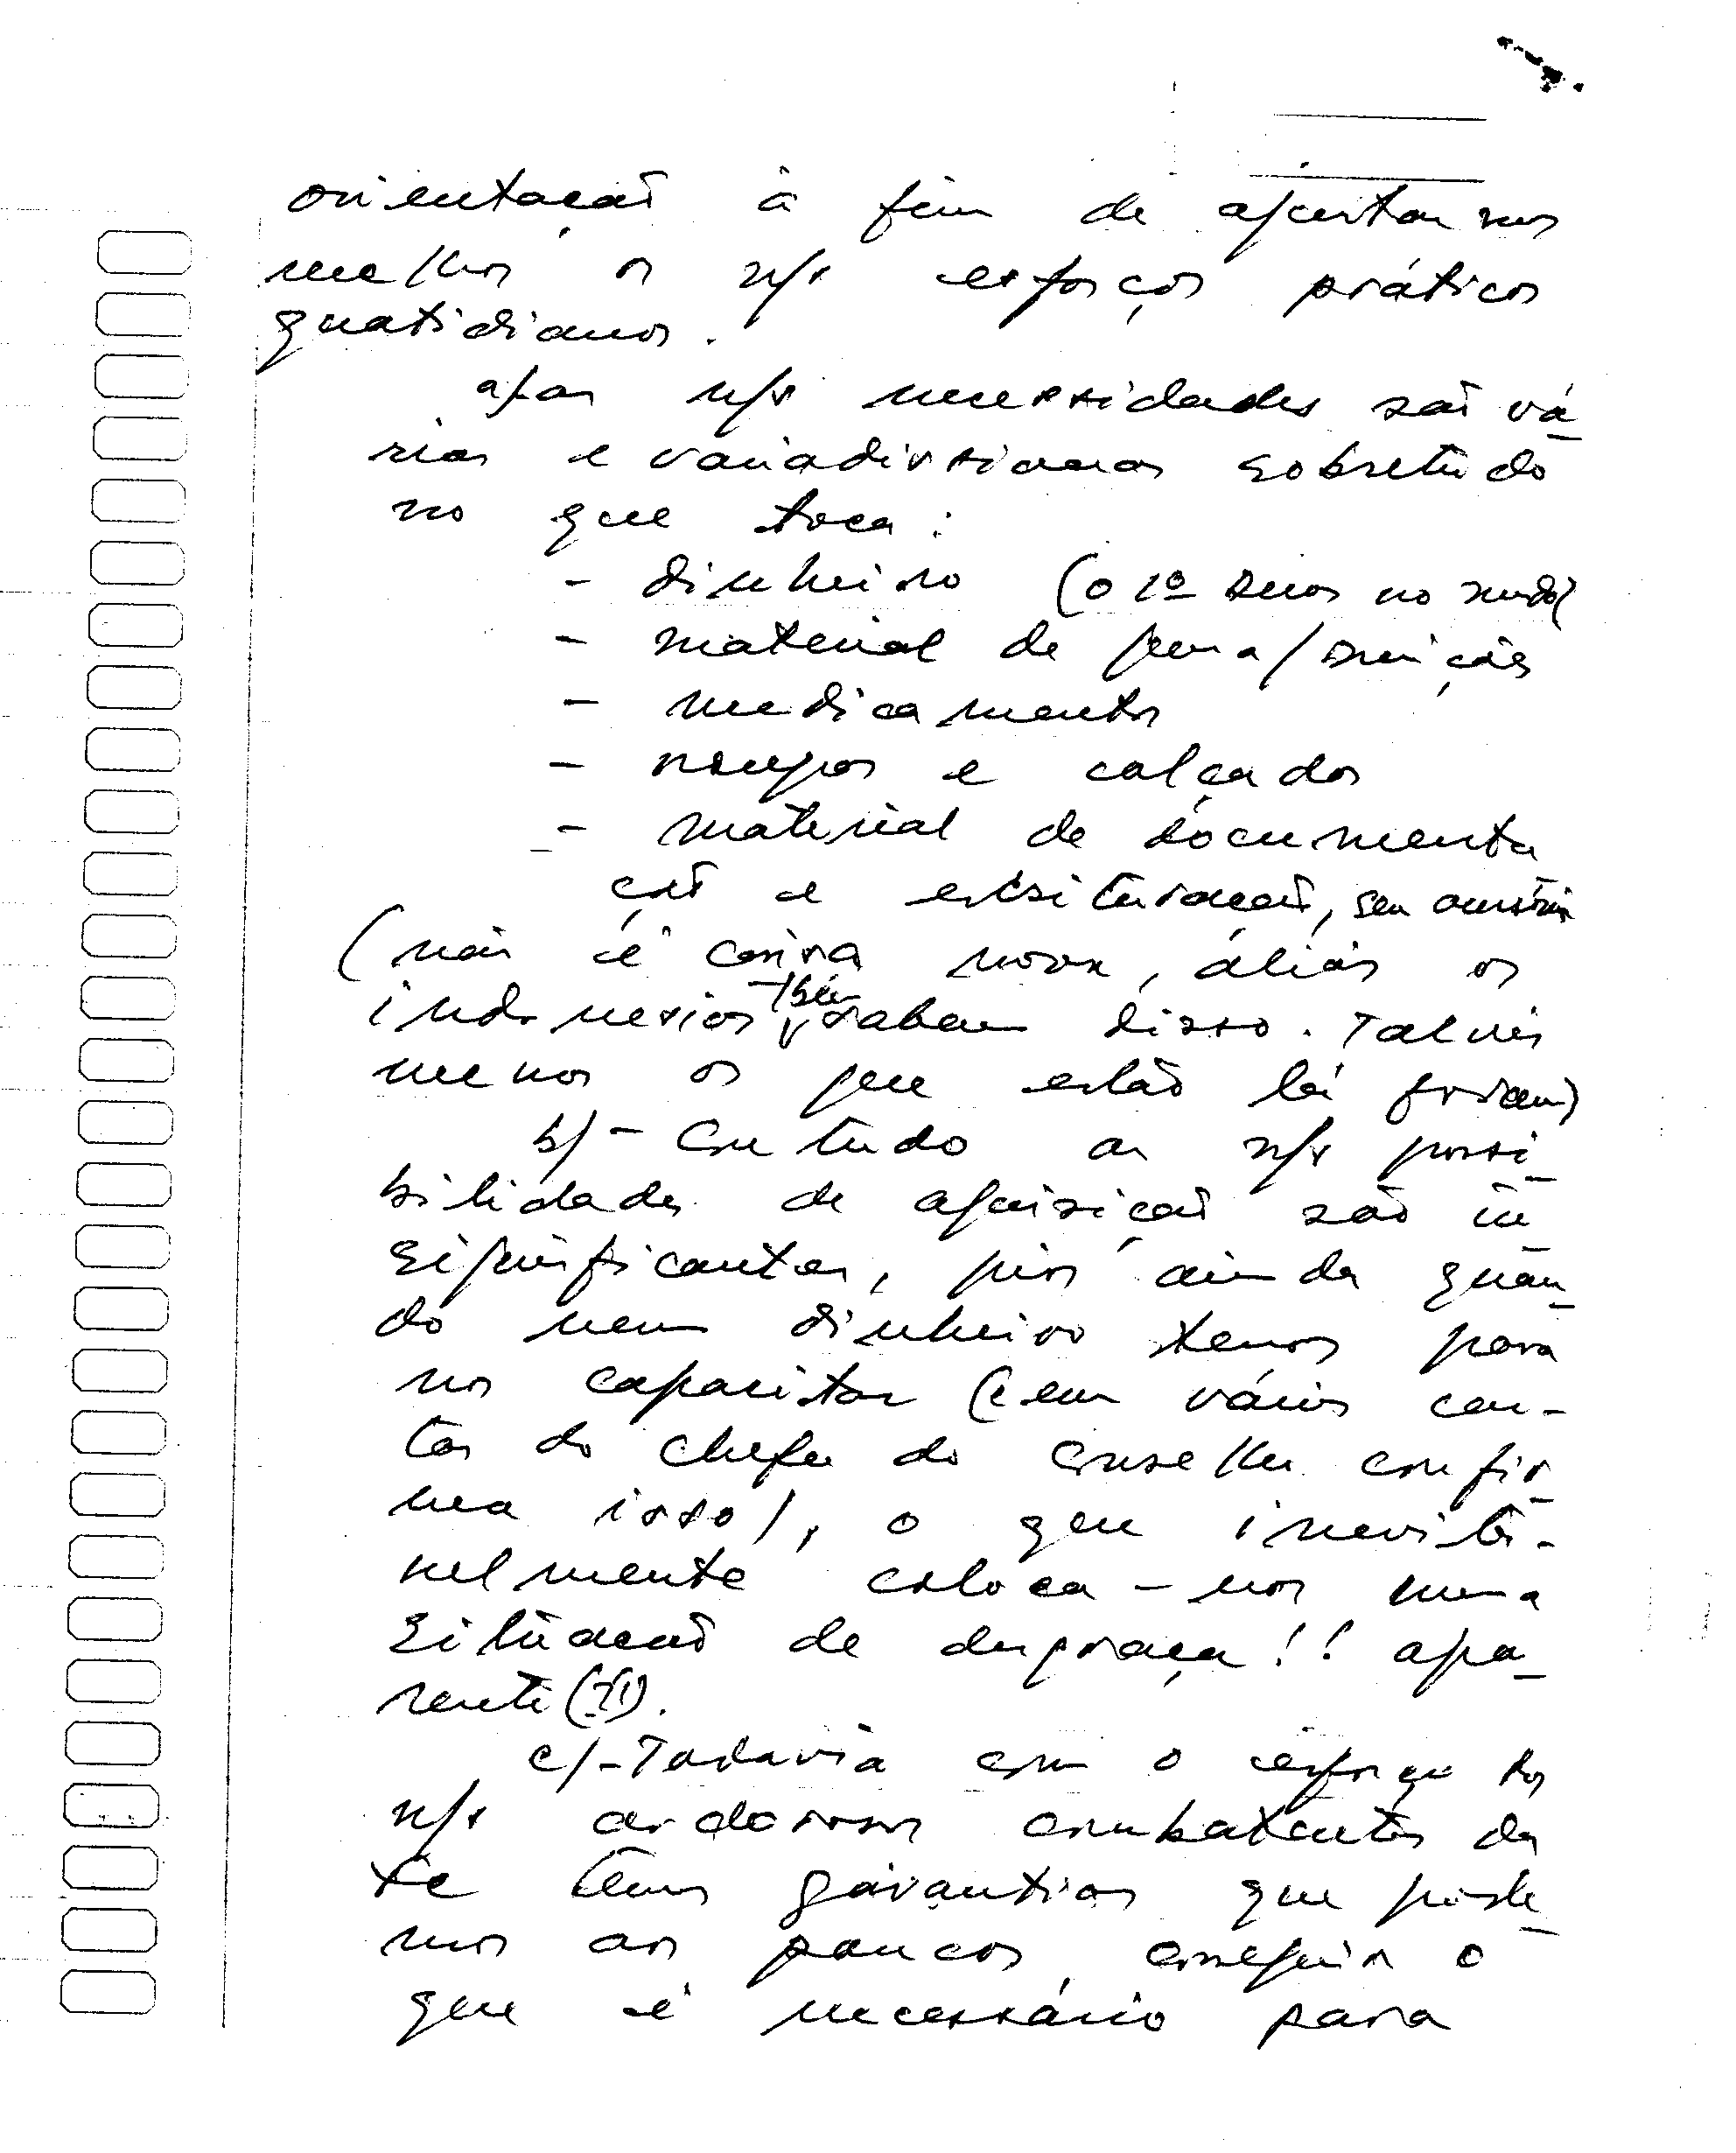 orientação à fim de ajustarmos
melhor os n/s esforços práticos
quotidianos.
a/as n/s necessidades são vá-
rias e variadissimas sobretudo
no que toca:
- dinheiro (o 1º deus no mundo)
- material de guerra/munições
- medicamentos
- roupas e calçados
- material de documenta
ção e
(não é coisa nova, aliás os
indonesios tbém sabem disso. Talvés
menos os que estão lá foram)
b/- Contudo as n/s possi-
bilidades de aquisição são in
significantes, pior ainda quan-
do nem dinheiro temos para
nos capacitar (e em vários car-
tas do chefe do conselho confir-
ma isso), o que inevitá-
velmente coloca-nos numa
situação de desgraça!! apa-
rente (?!).
c/-Todavia com o esforço dos
n/s ardorosos combatentes da
te temos garantias que pode-
mos aos poucos conseguir o
que é necessário para